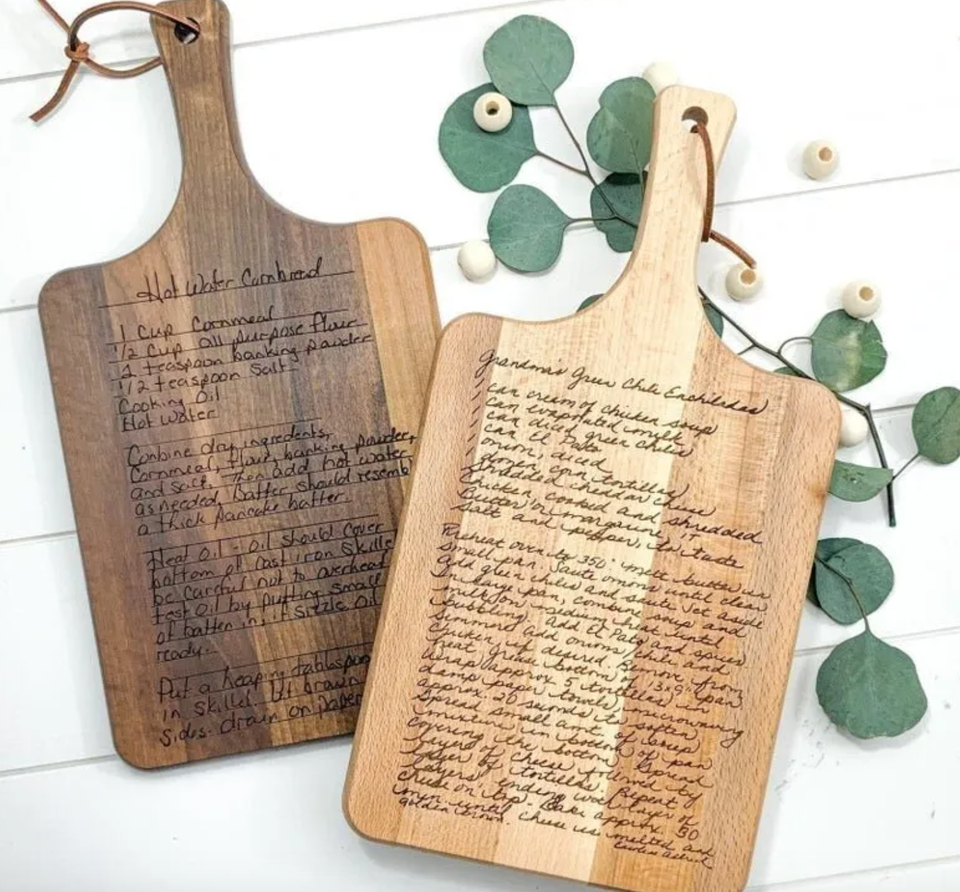 Hot Water Cornbread
1 Cup Cornmeal
1/2 Cup all purpose flour
1 teaspoon banking powder
1/2 teaspoon Salt
Cooking Oil
Hot Water
Combine dry ingredients,
Cornmeal, flour, banking powder,
and salt. Then add hot water
as needed, batter should resemb
a thick pancake batter.
Heat Oil - Oil should cover
bottom of cast iron skille
be careful not to overhead
test oil by putting small
of batter in, if sizzle Oil
ready.
Put a heaping tablespoon
in skillet. let brown
sides. drain on paper
Grandma's Green Chile Enchiladas
can cream of chicken soup
can evaporated milk
can diced green chiles
can El Pato
onion, diced
dozen corn tortillas
Shredded cheddar cheese
Chicken, cooked and shredded
Butter or margarine
Salt and pepper, to taste
Preheat oven to 350. melt butter in
small pan. Saute onions until clear
add green chiles and saute. Set aside
In large pan, combine soup and
milk on medium heat until
bubbling. add El Pato and spices
Simmer add onions, chile and
chicken if desired. Remove from
heat. grease bottom 13x9" pan
Wrap approx 5 tortillas in
damp paper towels, microwaving
approx. 20 seconds to soften.
Spread small amt of soup
mixture in bottom of pan
covering the bottom. Spread
layer of cheese followed by
layer of tortillas. Repeat
layers ending with layer of
cheese on top. Bake approx. 30
min. until cheese is melted and
golden brown.